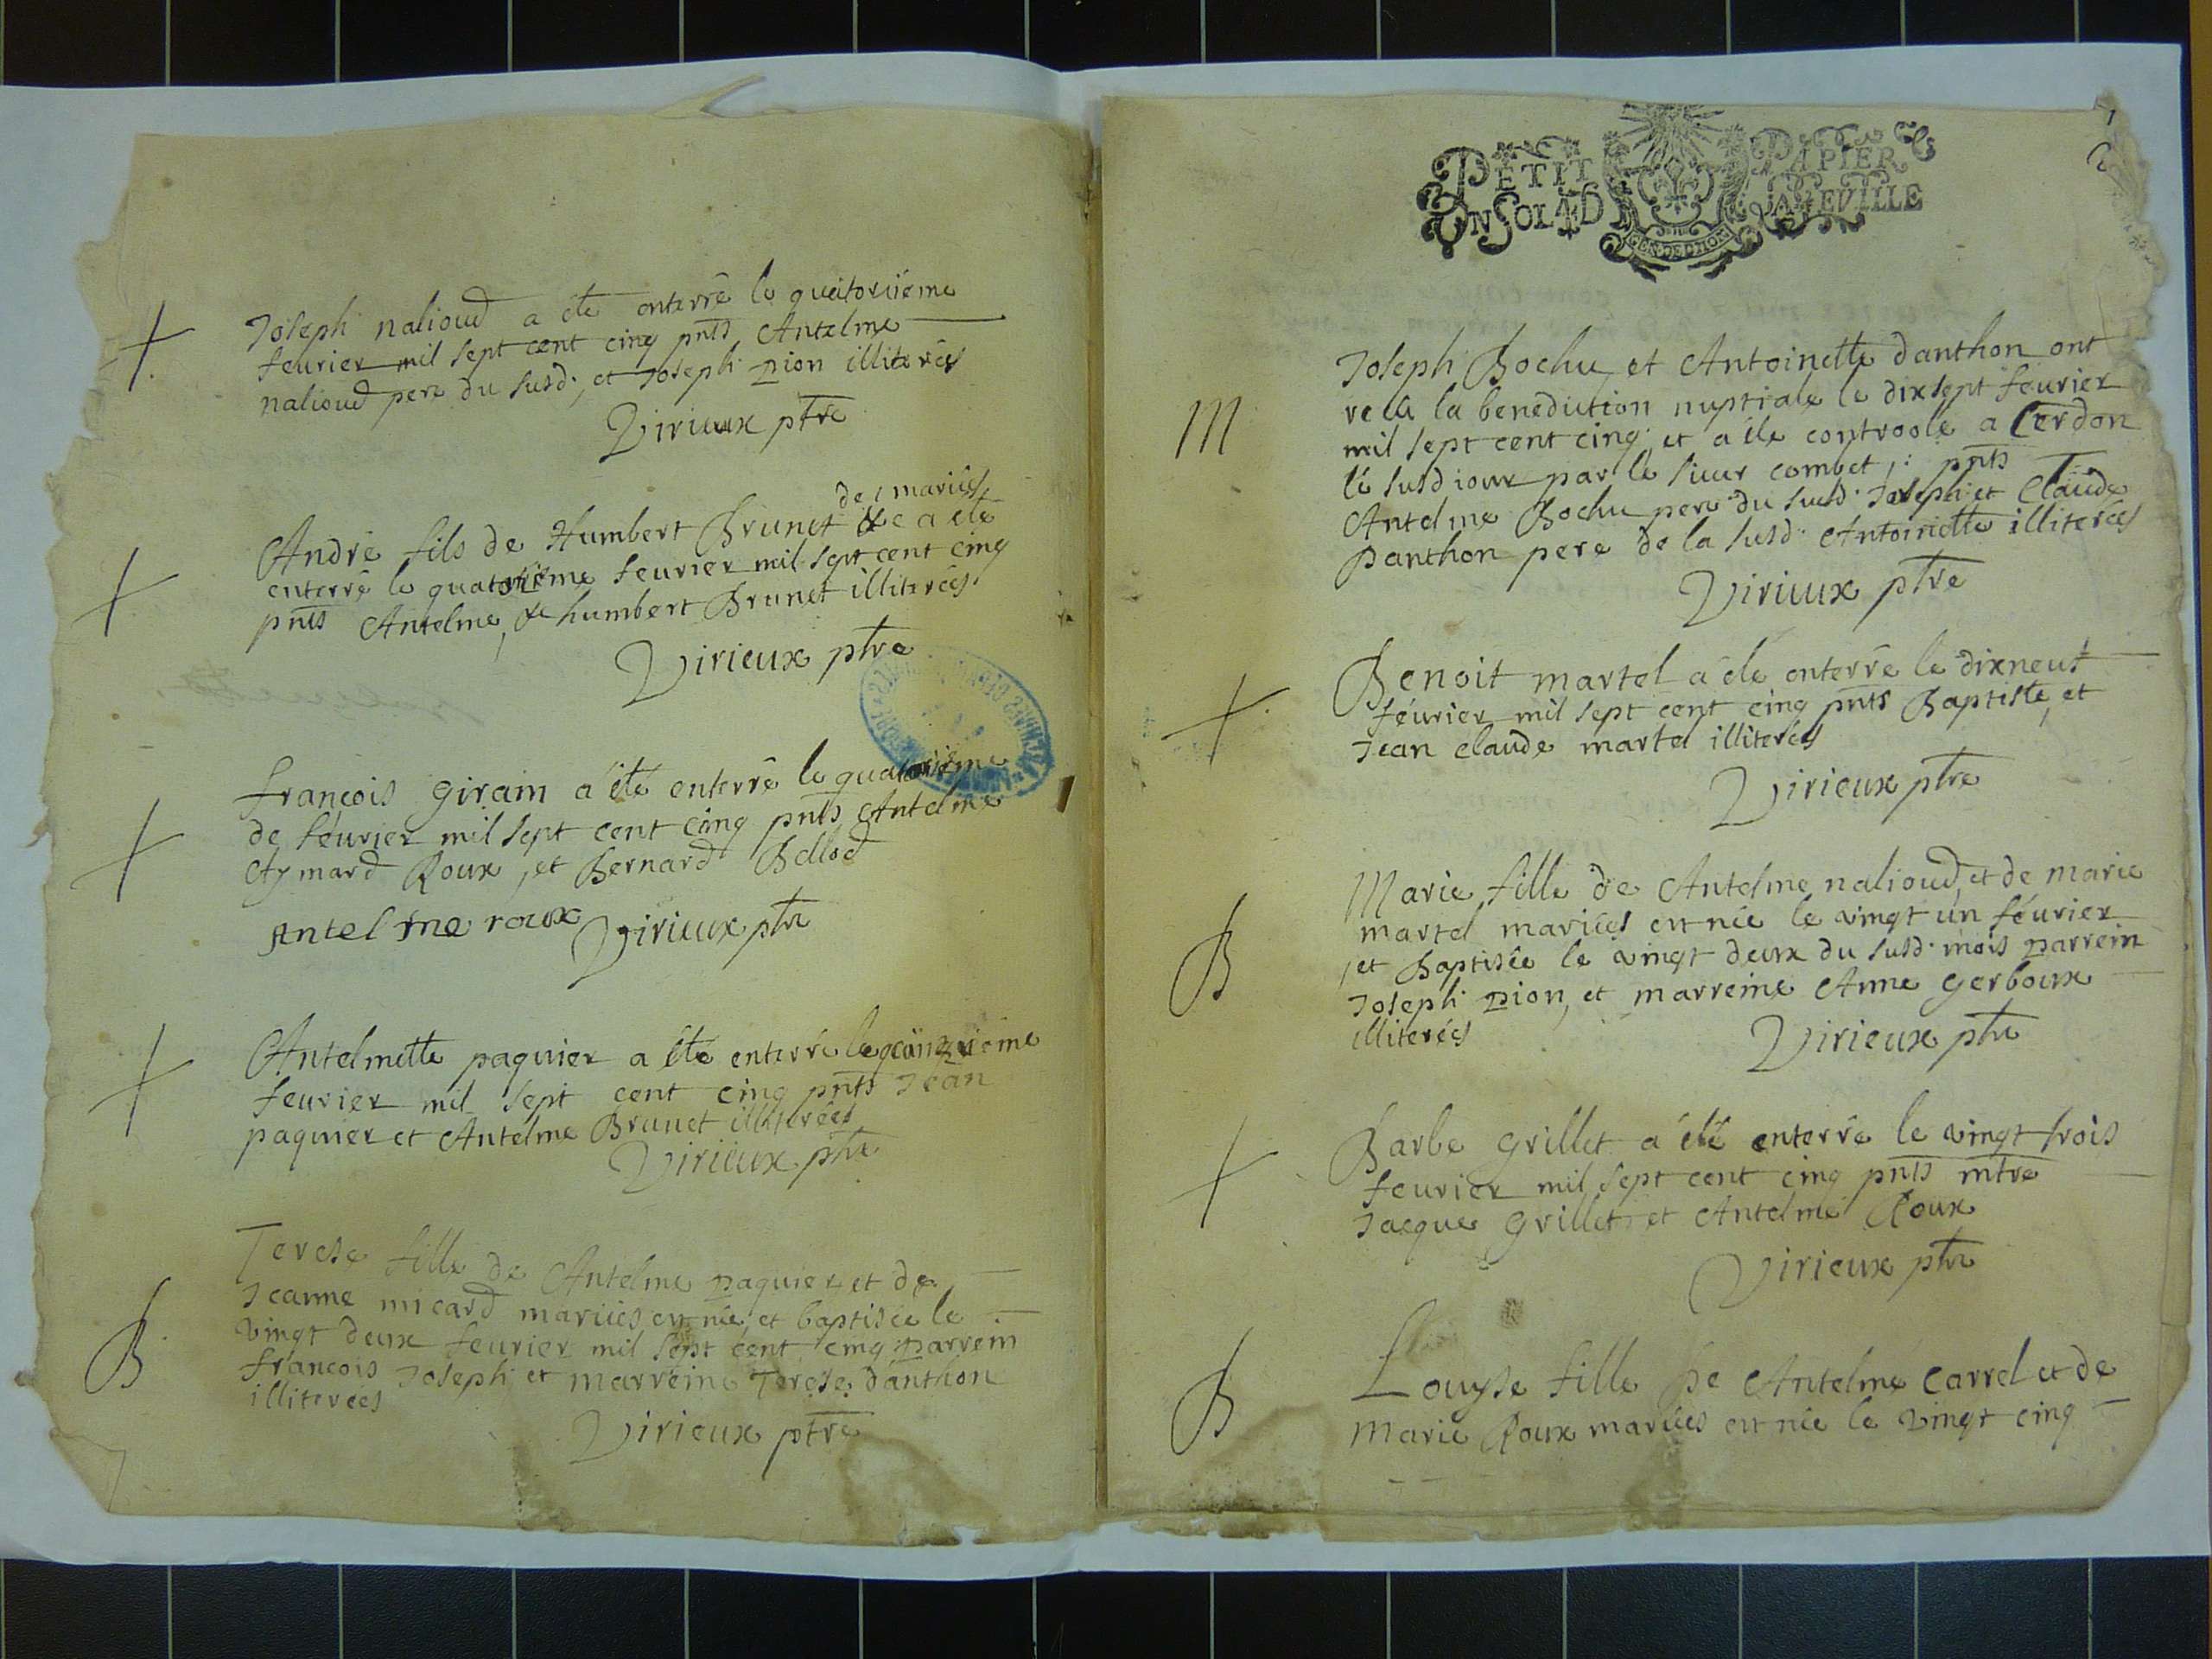 +
Joseph nalioud a été enterré le quatorsième
feurier mil sept cent cinq pnts Antelme
nalioud pere du susd., et Joseph pion illiterées
Virieux ptre
de mariées
+
André fils de Humbert Brunet &c a été
enterré le quatorsième feurier mil sept cent cinq
pnts Antelme, & humbert Brunet illiterées.
Virieux ptre
+
françois girain a été enterré le quatorsième
de féurier mil sept cent cinq pnts Antelme
Aymard Roux, et Bernard Bellod
Antelme roux Virieux ptre
+
Antelmette paquier a été enterré le quinzieme
feurier mil sept cent cinq pnts Jean
paquier et Antelme Brunet illiterées
Virieux ptre
B
Terese fille de Antelme paquier et de
Jeanne micard mariées est née, et baptisée le
vingt deux feurier mil sept cent cinq parrein
françois Joseph et marreine Terese danthon
illiterées
Virieux ptre
PETIT PAPIER
UN SOL 4 D LA FEUILLE
GEN DE DIION
2
M
Joseph Bochu et Antoinette danthon ont
recu la benediction nuptiale le dixsept feurier
mil sept cent cinq, et a été controolé a Cerdon
lé susd iour par le sieur combet,: pnts
Antelme Bochu pere du susd. Joseph et Claude
Danthon pere de la susd. Antoinette illiterées
Virieux ptre
+
Benoit martel a été enterré le dixneuf
féurier mil sept cent cinq pnts Baptiste, et
Jean claude martel illiterées
Virieux ptre
B
Marie fille de Antelme nalioud, et de marie
martel mariées est née le vingt un féurier
, et Baptisée le vingt deux du susd. mois parrein
Joseph pion, et marreine Anne gerboux
illiterées
Virieux ptre
+
Barbe grillet a été enterré le vingt trois
feurier mil sept cent cinq pnts mtre
Jacque Grillet et Antelme Roux
Virieux ptre
B
Louyse fille de Antelme Carrel et de
Marie Roux mariées est née le vingt cinq